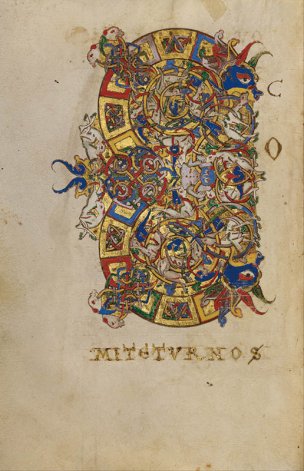 C
O
MITeTVRNOS